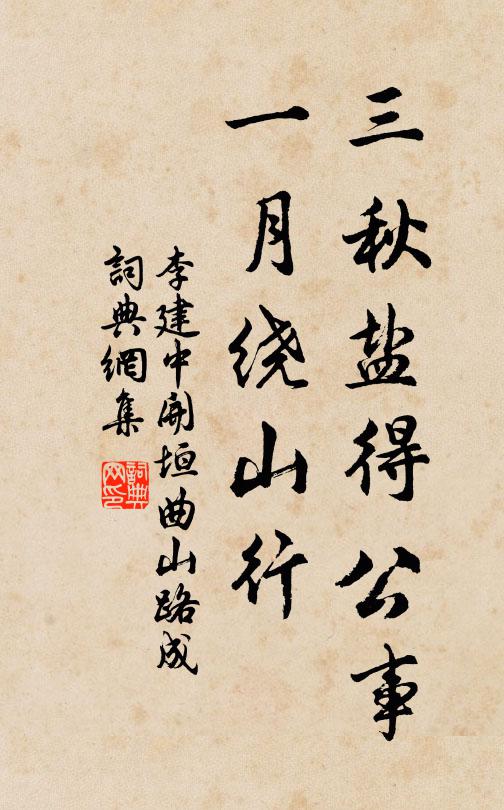 三秋盐得公事
一月绕山行
李建中開垣曲山路成
詞典網集
詞典网印